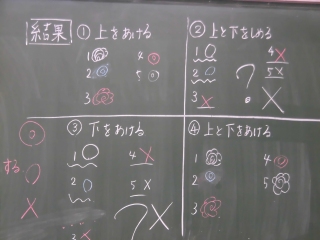 結果
①上をあける
1 4
2 5
3
②上と下をしめる
1○ 4×
2○ 5×
3×
?
×
③下をあける
1○ 4×
2○ 5×
3×
?×
④上と下をあける
1 4
2 5
3
◎
する○
×